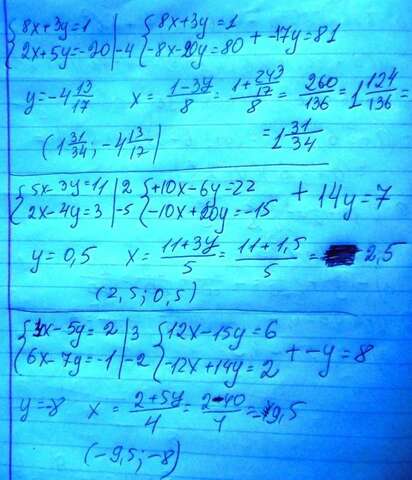 {8x+3y=1 {8x+3y=1
{2x+5y=-20 |-4 {-8x-20y=80 + -17y=81
y=-4 13/17 x= (1-3y)/8 = (1+243/17)/8 = 260/136 = 1 124/136 =
(1 31/34; -4 13/17) =1 31/34
{5x-3y=11 |2 {+10x-6y=22
{2x-4y=3 |-5 {-10x+20y=-15 + 14y=7
y=0,5 x= (11+3y)/5 = (11+1,5)/5 = 2,5
(2,5; 0,5)
{4x-5y=2 |3 {12x-15y=6
{6x-7y=-1 |-2 {-12x+14y=2 + -y=8
y=-8 x= (2+5y)/4 = (2-40)/4 = -9,5
(-9,5; -8)